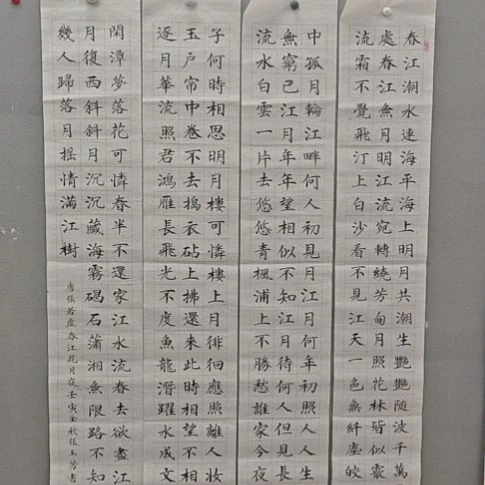 春江潮水連海平海上明月共潮生艷艷隨波千萬
處春江無月明江流宛轉繞芳甸月照花林皆似霰
流霜不覺飛汀上白沙看不見江天一色無纖塵皎
中孤月輪江畔何人初見月江月何年初照人人生
無窮已江月年年望相似不知江月待何人但見長
流水白雲一片去悠悠青楓浦上不勝愁誰家今夜
子何時相思明月樓可憐樓上月徘徊應照離人妝
玉戶帘中卷不去搗衣砧上拂還來此時相望不相
逐月華流照君鴻雁長飛光不度魚龍潛躍水成文
閑潭夢落花可憐春半不還家江水流春去欲盡江
月復西斜斜月沉沉藏海霧碣石瀟湘無限路不知
幾人歸落月搖情滿江樹
唐張若虛春江花月夜壬寅金秋張玉芳書